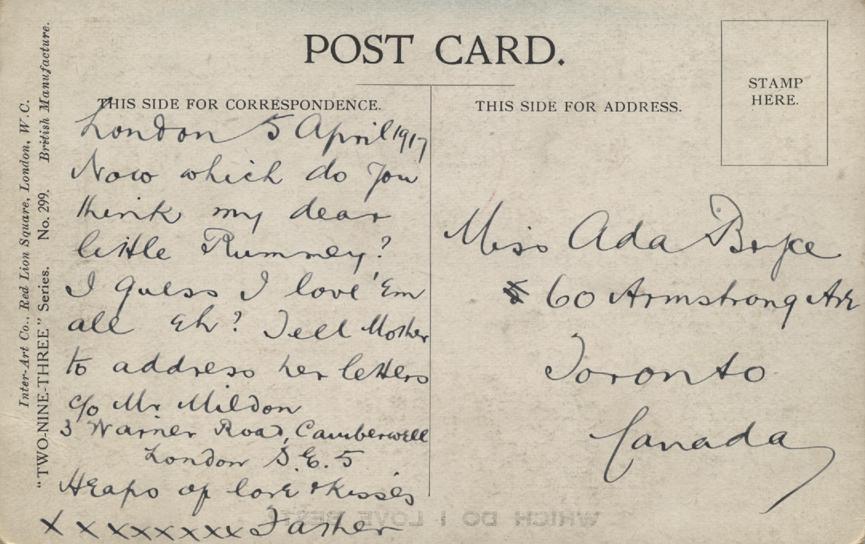 POST CARD.
STAMP
HERE.
THIS SIDE FOR CORRESPONDENCE.
THIS SIDE FOR ADDRESS.
London 5 April 1917
Now which do you
think my dear
little Rumney?
I guess I love 'Em
all Eh? Tell Mother
to address her letters
c/o Mr Mildon
3 Warner Road, Camberwell
London S.E. 5
Heaps of love & kisses
x x x x x x x x Father
Miss Ada Bryce
60 Armstrong Ave
Toronto
Canada
Inter-Art Co., Red Lion Square, London, W.C. British Manufacture.
"TWO-NINE-THREE" Series. No. 299.
WHICH DO I LOVE BEST?